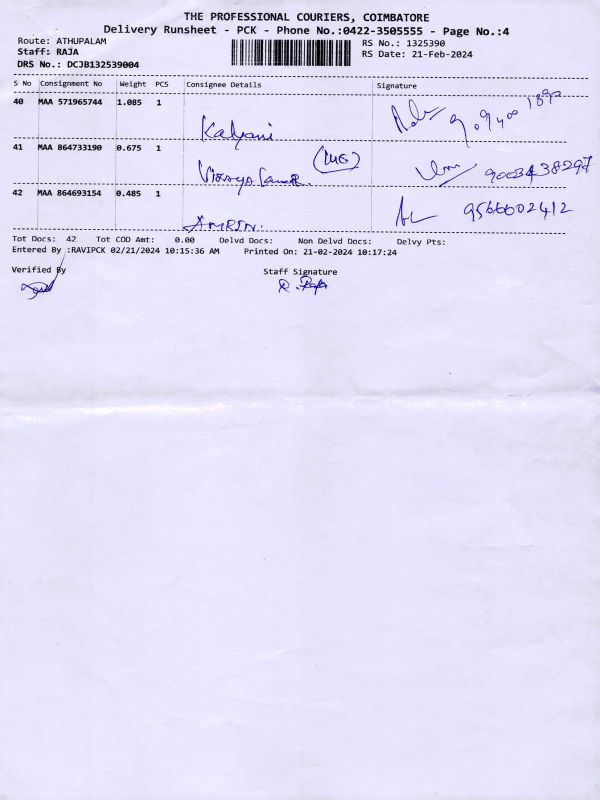 THE PROFESSIONAL COURIERS, COIMBATORE
Delivery Runsheet - PCK - Phone No.:0422-3505555 - Page No.:4
Route: ATHUPALAM
RS No.: 1325390
Staff: RAJA
RS Date: 21-Feb-2024
DRS No.: DCJB132539004
S No Consignment No Weight PCS Consignee Details Signature
40 MAA 571965744 1.085 1
Kalyani
41 MAA 864733190 0.675 1
9003438297
42 MAA 864693154 0.485 1
9566602412
AMRIN.
Tot Docs: 42 Tot COD Amt: 0.00 Delvd Docs: Non Delvd Docs: Delvy Pts:
Entered By :RAVIPCK 02/21/2024 10:15:36 AM Printed On: 21-02-2024 10:17:24
Verified By Staff Signature
R. Raja